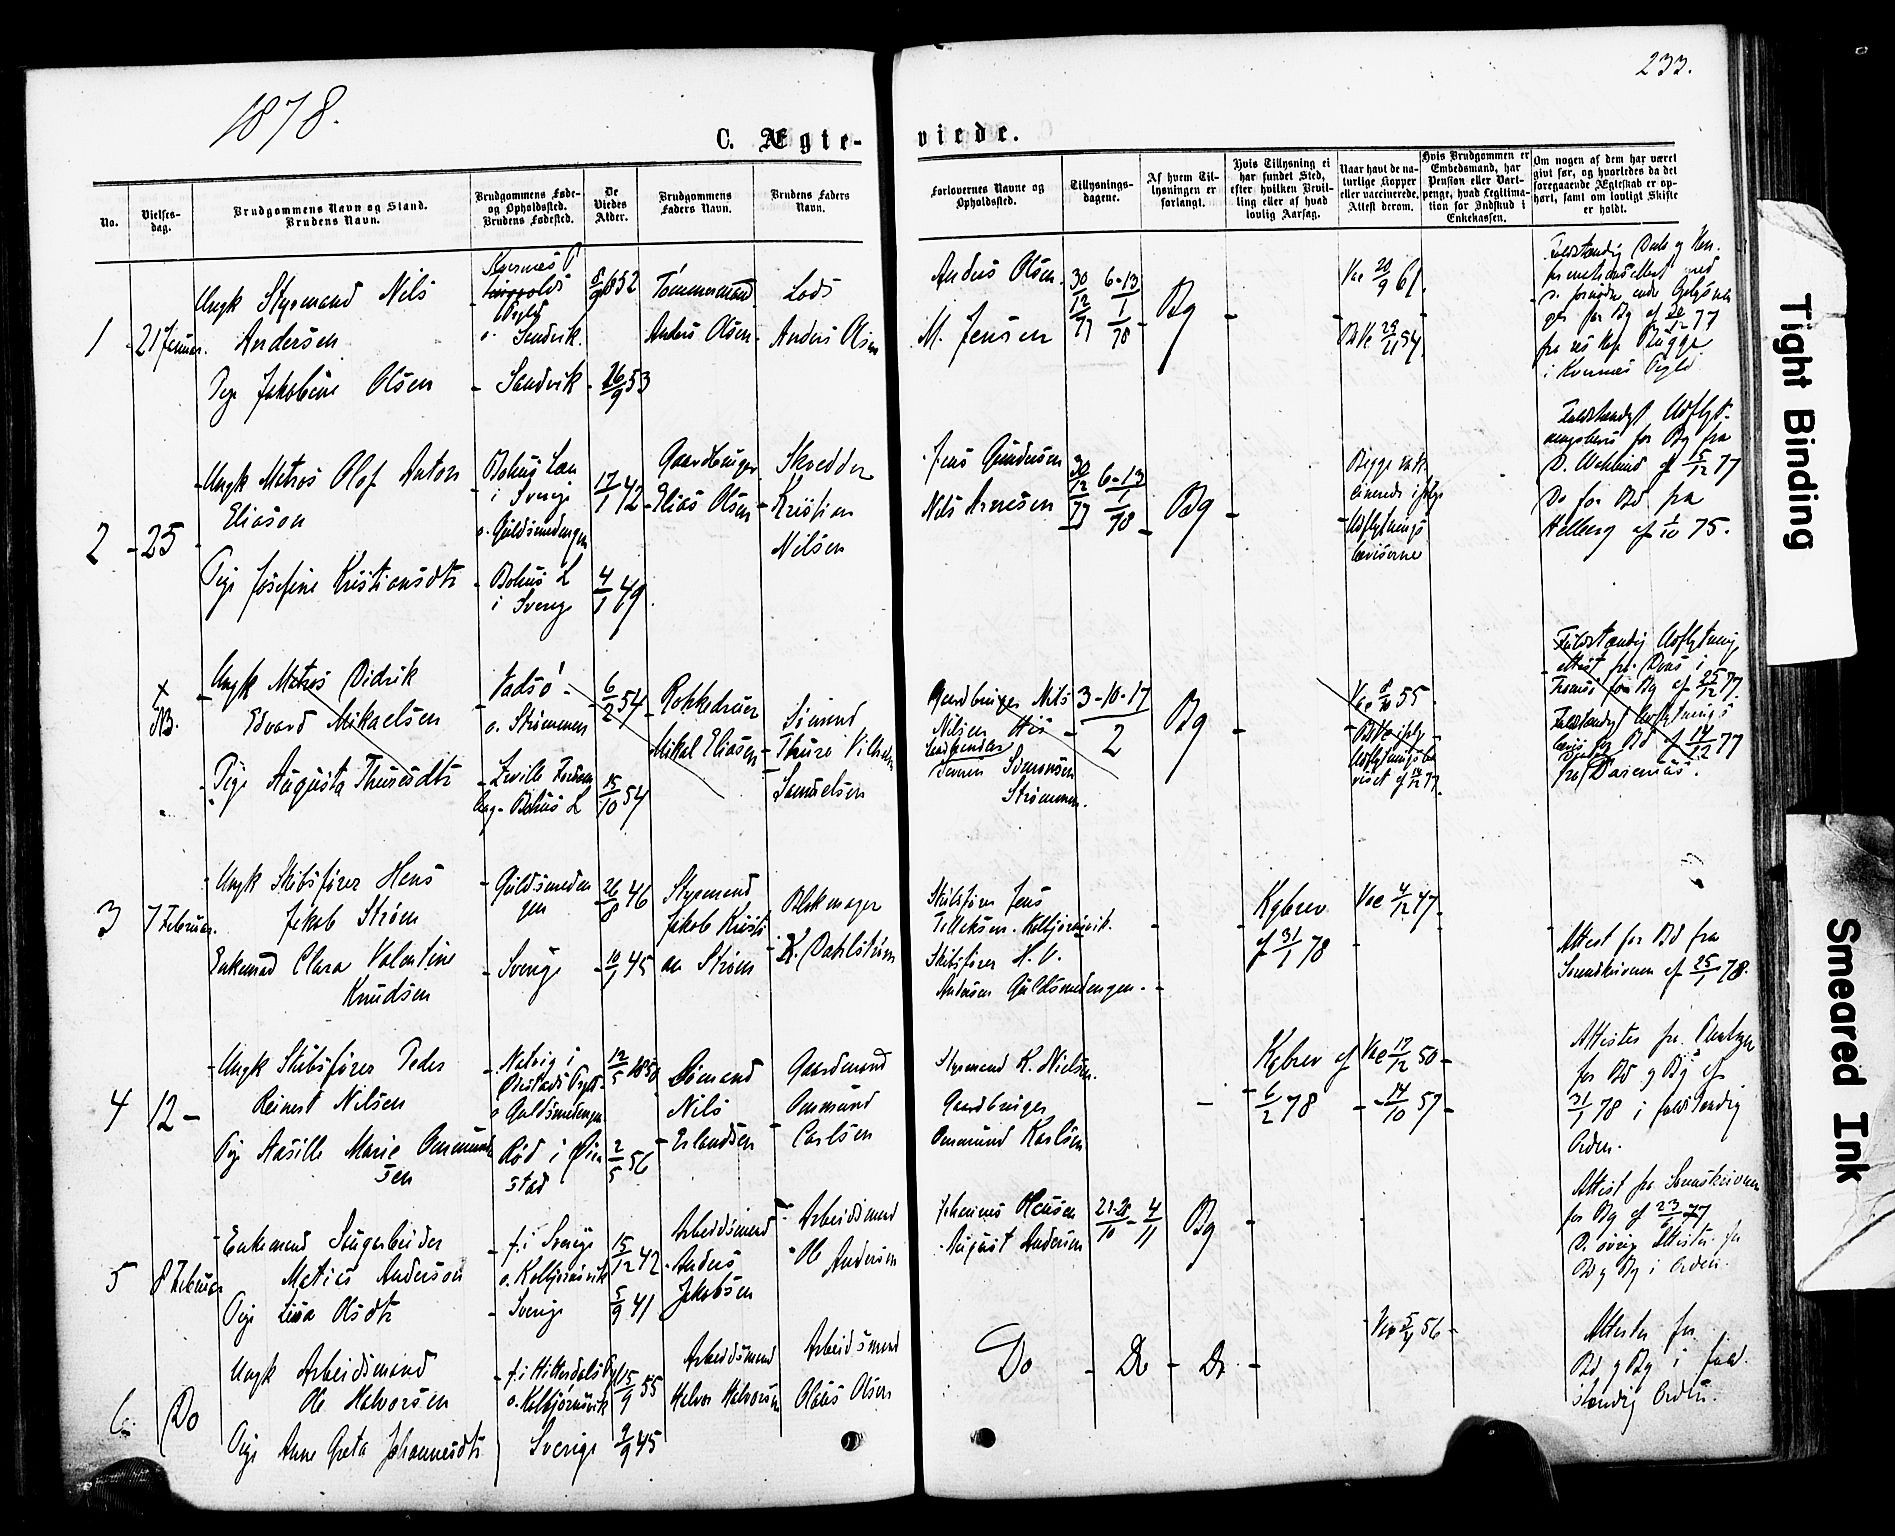 1878.
233.
C. Ægte-
viede.
No.
Vielses-
dag.
Brudgommens Navn og Stand.
Brudens Navn.
Brudgommens Føde-
og Opholdssted.
Brudens Fødested.
De
Viedes
Alder.
Brudgommens
Faders Navn.
Brudens Faders
Navn.
Forlovernes Navne og
Opholdssted.
Tillysnings-
dagene.
Af hvem Til-
lysningen er
forlangt.
Hvis Tillysning ei
har fundet Sted,
efter hvilken Bevil-
ling eller af hvad
lovlig Aarsag.
Naar havt de na-
turlige Kopper
eller vaccinerede.
Attest derom.
Hvis Brudgommen er
Embedsmand, har
Pension eller Vart-
penge, hvad Legitima-
tion for Indskud i
Enkekassen.
Om nogen af dem har været
gift før, og hvorledes da det
foregaaende Ægteskab er op-
hørt, samt om lovligt Skifte
er holdt.
1
21 Januar.
Ungk Styrmand Nils
Andersen
Pige Jakobine Olsen
Kvernes P
o. Sandvik.
- Sandvik
5/9 1852
26/9 53
Tømmermand
Anders Olsen
Lods
Anders Olsen
Anders Olsen
M. Jensen
30/12 77
6-13/1 78
Bg
Vac 20/9 61.
Bd Vc 29/11 54
i Kvernes Prgld
2
- 25 -
Ungk Matros Olof Anton
Eliason
Pige Josefine Kristiansdtr
Bohus Län
i Sverige
o. Guldsmedengen
- Bohus L
i Sverige
17/1 42
4/1 49
Gaardbruger
Elias Olsen
Skredder
Kristian
Nilsen
Jens Gundersen
Nils Arnesen
30/12 77
6-13/1 78
Bg
Begge vak-
cinerede ifølge
Udflytnings
beviserne
Fuldstændigt Udflyt-
ningsbevis for Bg fra
D. Wiklund af 15/12 77
Do for Bd fra
Helberg af 1/10 75.
NB.
Ungk Matros Didrik
Edvard Mikaelsen
Pige Augusta Thuresdtr
Vadsø -
o. Strømmen
Bohus L
6/2 54
15/10 54
Rokkedreier
Mikal Eliasen
Sømand
Thure Vilhelm
Samuelsen
Gaardbruger Nils
Nilsen His
Strømmen.
3-10-17
2
Bg
Vac 8/10 55
Bd Vc ifølge
Udflytningsbe
viset af 14/12 77.
Fuldstændig Udflytnings
attest fra
Tromsø for Bg af 25/12 77.
Fuldstændigt Udflytnings
bevis for Bd af 14/12 77
3
7 Februar.
Ungk Skibsfører Hans
Jakob Strøm
Enkemad Clara Valentine
Knudsen
- Guldsmeden
gen
- Sverige
26/8 46
10/1 45
Styrmand
Jakob Kristi
an Strøm
Blokmager
K. Dahlstrøm
Skibsfører Jens
Tellefsen. Kolbjørnsvik.
Skibsfører H. V.
Andersen Guldsmedengen. -
Kgbrev
af 31/1 78
Vac 4/12 47
Attest for Bd fra
Sorenskriveren af 25/1 78.
4
12 -
Ungk Skibsfører Peder
Reinert Nilsen
Pige Aasille Marie Ommunds
sen
- Natvig i
Øiestads Prgld.
o Guldsmedengen
Rød i Øie
stad
12/5 1850
2/5 56
Sømand
Nils
Erlandsen
Gaardmand
Ommund
Carlsen
Styrmand K. Nielsen.
Gaardbruger
Ommund Karlsen
Kgbrev af
6/2 78
Vac 17/12 50 -
- 14/10 57 -
Attester fra
for Bd og Bg af
31/1 78 i fuldstændig
Orden.
5
8 Februar
Enkemand Sagarbeider
Matias Anderson
Pige Lina Olsdtr
- f. i Sverige
o. Kolbjørnsvik
- Sverige
15/12 42
5/9 41
Arbeidsmand
Anders
Jakobsen
Arbeidsmand
Ole Andersen
Johannes Hansen
August Andersen
21-28/10 - 4/11
Bg
Attest fra Sorenskriveren
for Bg af 23/6 77
De øvrige Attester for
Bd og Bg i Orden.
6.
Do
Ungk Arbeidsmand
Ole Halvorsen
Pige Anne Greta Johannesdtr
- f. i Hitterdals Pr
o. Kolbjørnsvik
Sverige
15/9 55
9/9 45
Arbeidsmand
Halvor Halvorsen
Arbeidsmand
Olaus Olsen
Do
- Do -
Do. -
Vac 5/9 56 -
Attester for
Bd og Bg i fuld
stændig Orden.
Tight Binding
Smeared Ink